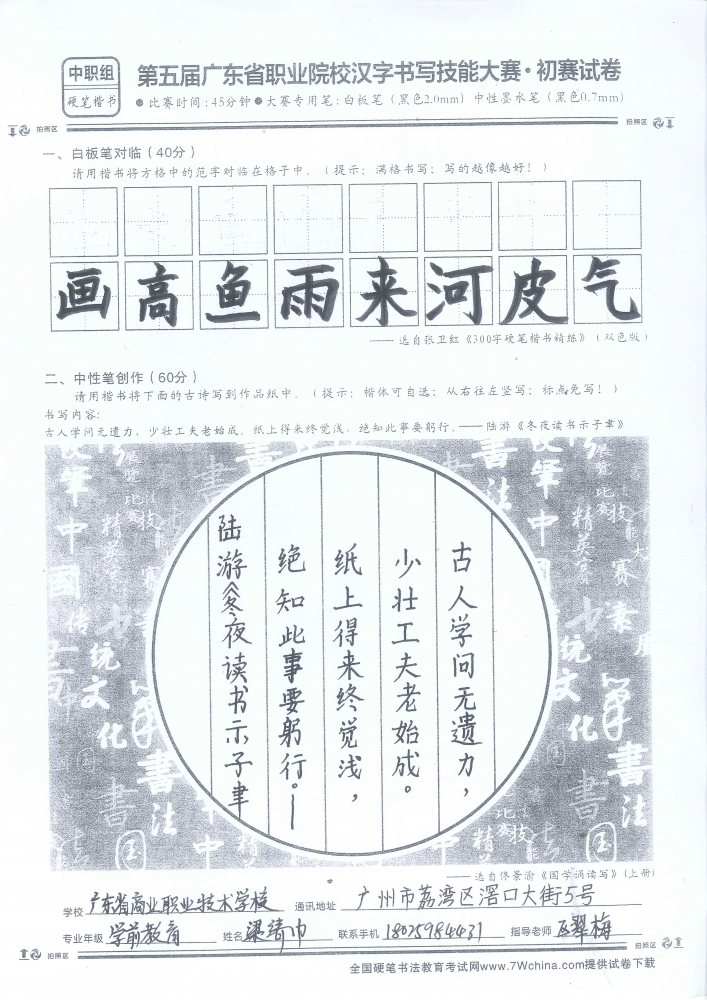 中职组
硬笔楷书
第五届广东省职业院校汉字书写技能大赛·初赛试卷
●比赛时间:45分钟●大赛专用笔:白板笔(黑色2.0mm) 中性墨水笔(黑色0.7mm)
拍照区
拍照区
一、白板笔对临(40分)
请用楷书将方格中的范字对临在格子中。(提示:满格书写;写的越像越好!)
画高鱼雨来河皮气
——选自张卫红《300字硬笔楷书精练》(双色版)
二、中性笔创作(60分)
请用楷书将下面的古诗写到作品纸中。(提示:楷体可自选;从右往左竖写;标点免写!)
书写内容:
古人学问无遗力,少壮工夫老始成。纸上得来终觉浅,绝知此事要躬行。——陆游《冬夜读书示子聿》
古人学问无遗力,
少壮工夫老始成。
纸上得来终觉浅,
绝知此事要躬行。—
陆游《冬夜读书示子聿
——选自佟景渝《国学诵读写》(上册)
学校 广东省商业职业技术学校 通讯地址 广州市荔湾区滘口大街5号
专业年级 学前教育 姓名 梁靖巾 联系手机 18075984431 指导老师 翠梅
拍照区
拍照区
全国硬笔书法教育考试网www.7Wchina.com提供试卷下载